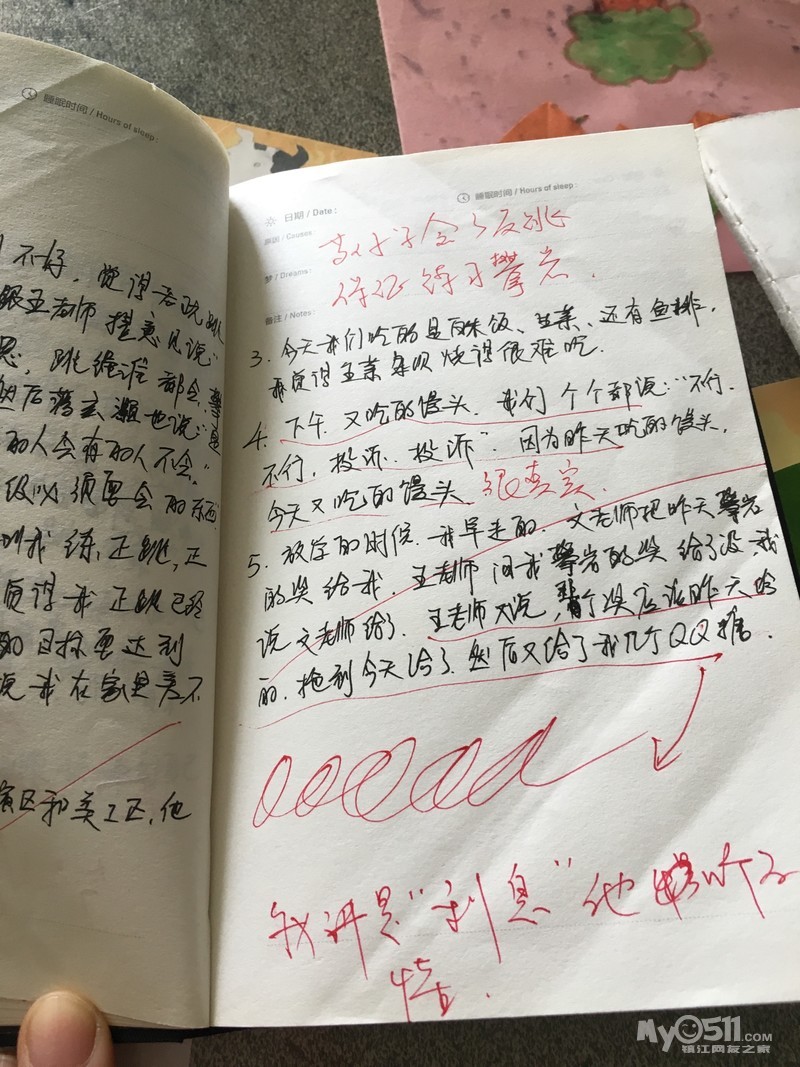 睡眠时间 / Hours of sleep:
不好，觉得老玩跳
跟王老师提意见说"
思，跳绳谁都会，
然后潘玄灏也说"
的人会有的人不会"
级必须要会的东西
叫我练正跳，正
觉得我正跳已经
的目标要达到
说我在家里表不
演区和美工区，他
日期 / Date:
睡眠时间 / Hours of sleep:
原因 / Causes:
梦 / Dreams:
会了反跳
保证练习攀岩.
备注 / Notes:
3. 今天我们吃的是百味饭、生菜、还有鱼排，
我觉得生菜烧得很难吃.
4. 下午又吃的馒头. 我们个个都说："不行.
不行，投诉、投诉". 因为昨天吃的馒头，
今天又吃的馒头 很真实
5. 放学的时候. 我早走的. 文老师把昨天攀岩
的奖给我. 王老师问我攀岩的奖给了没，我
说文老师给了. 王老师又说，那个奖应该昨天给
的. 拖到今天给了. 然后又给了我几个QQ糖.
我讲是"利息"他听不
懂.
My0511.COM
镇江网友之家